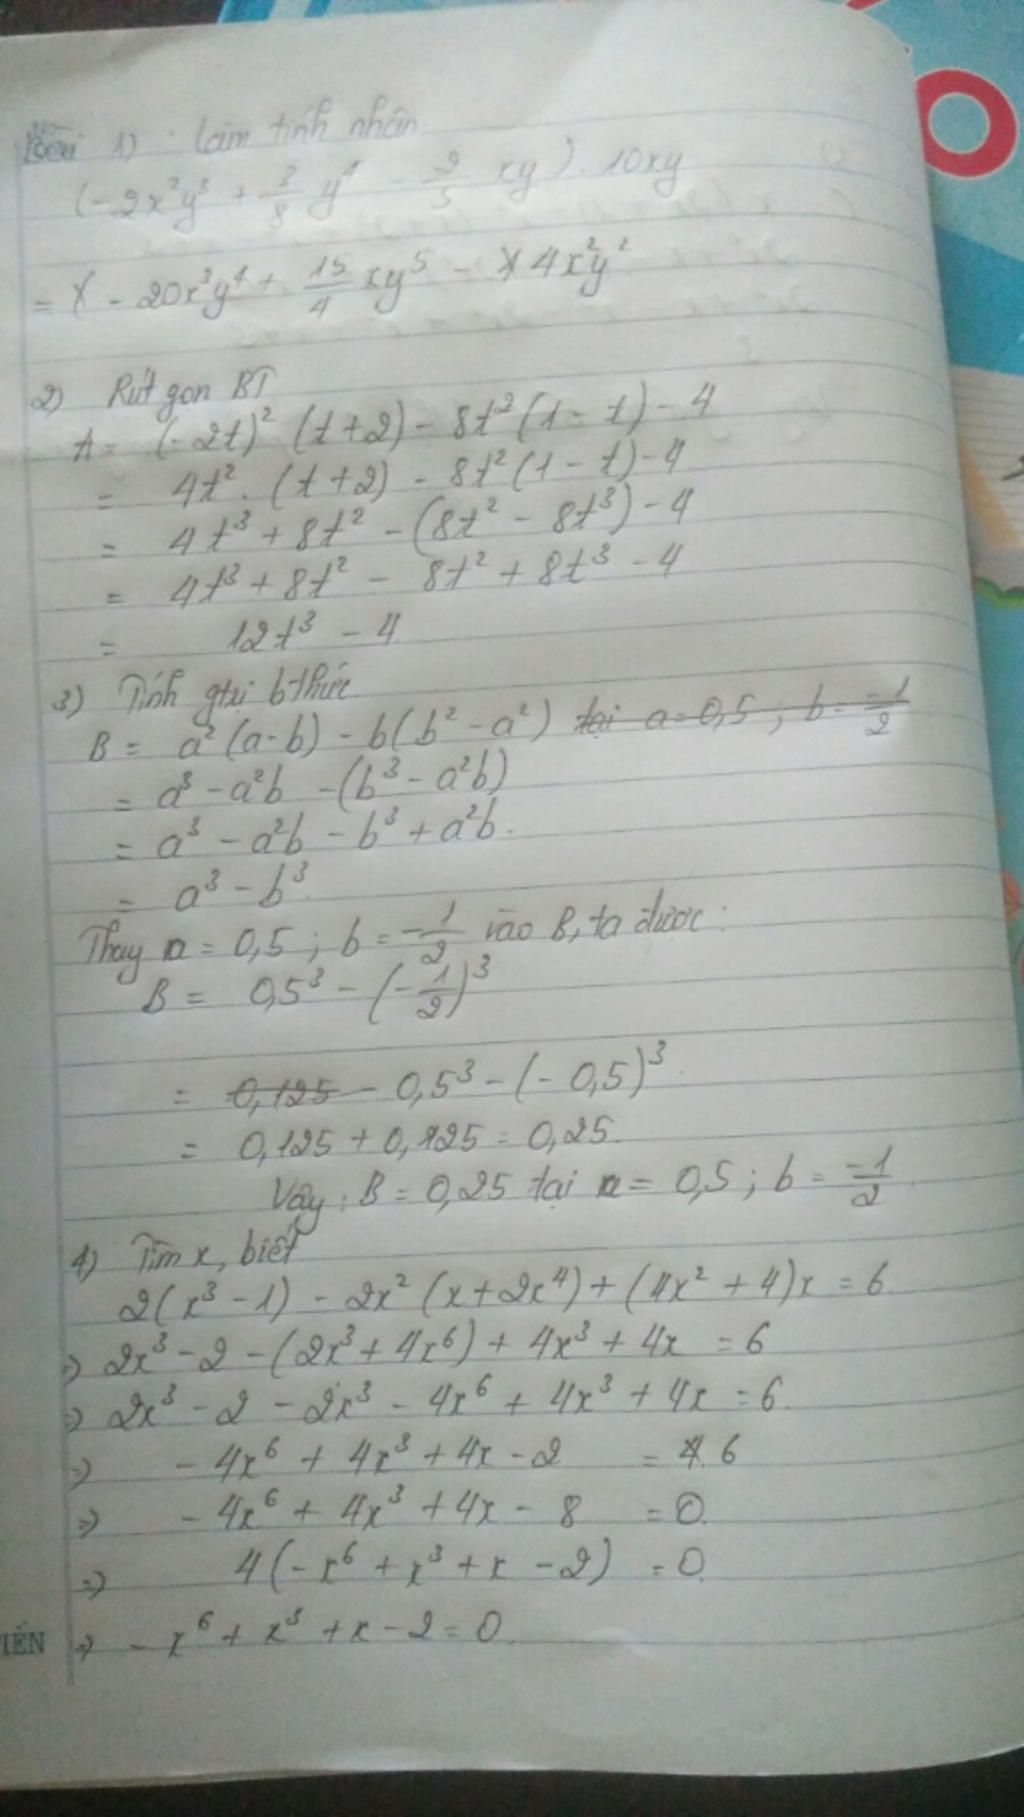 Bài 1) Làm tính nhân
(-2x²y³ + 3/8 y⁴ - 2/5 xy). 10xy
= - 20x³y⁴ + 15/4 xy⁵ - 4x²y²
2) Rút gọn BT
A = (-2t)² (t+2) - 8t² (1 - t) - 4
= 4t². (t+2) - 8t² (1 - t) - 4
= 4t³ + 8t² - (8t² - 8t³) - 4
= 4t³ + 8t² - 8t² + 8t³ - 4
= 12t³ - 4
3) Tính gtrị bthức
B = a² (a-b) - b(b² - a²) tại a=0,5 ; b = -1/2
= a³ - a²b - (b³ - a²b)
= a³ - a²b - b³ + a²b.
= a³ - b³.
Thay a = 0,5 ; b = -1/2 vào B, ta được :
B = 0,5³ - (-1/2)³
= 0,125 - 0,5³ - (- 0,5)³.
= 0,125 + 0,125 = 0,25.
Vậy : B = 0,25 tại a = 0,5 ; b = -1/2
4) Tìm x, biết
2(x³ - 1) - 2x² (x + 2x⁴) + (4x² + 4)x = 6
⇒ 2x³ - 2 - (2x³ + 4x⁶) + 4x³ + 4x = 6
⇒ 2x³ - 2 - 2x³ - 4x⁶ + 4x³ + 4x = 6.
⇒ - 4x⁶ + 4x³ + 4x - 2 = 6
⇒ - 4x⁶ + 4x³ + 4x - 8 = 0.
⇒ 4(-x⁶ + x³ + x - 2) = 0
IẾN ⇒ - x⁶ + x³ + x - 2 = 0